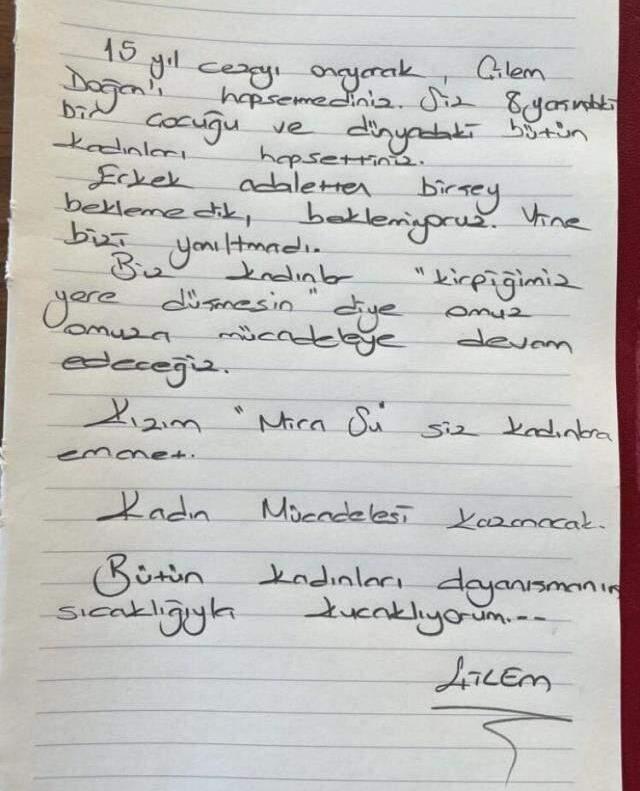 15 yıl cezayı onayarak, Çilem
Doğan'ı hapsemediniz. Siz 8 yaşındaki
bir çocuğu ve dünyadaki bütün
kadınları hapsettiniz.
Erkek adaletten birşey
beklemedik, beklemiyoruz. Yine
bizi yanıltmadı.
Biz kadınlar "kirpiğimiz
yere düşmesin" diye omuz
omuza mücadeleye devam
edeceğiz.
Kızım "Mira Su" siz kadınlara
emanet.
Kadın Mücadelesi kazanacak.
Bütün kadınları dayanışmanın
sıcaklığıyla kucaklıyorum.--
ÇİLEM